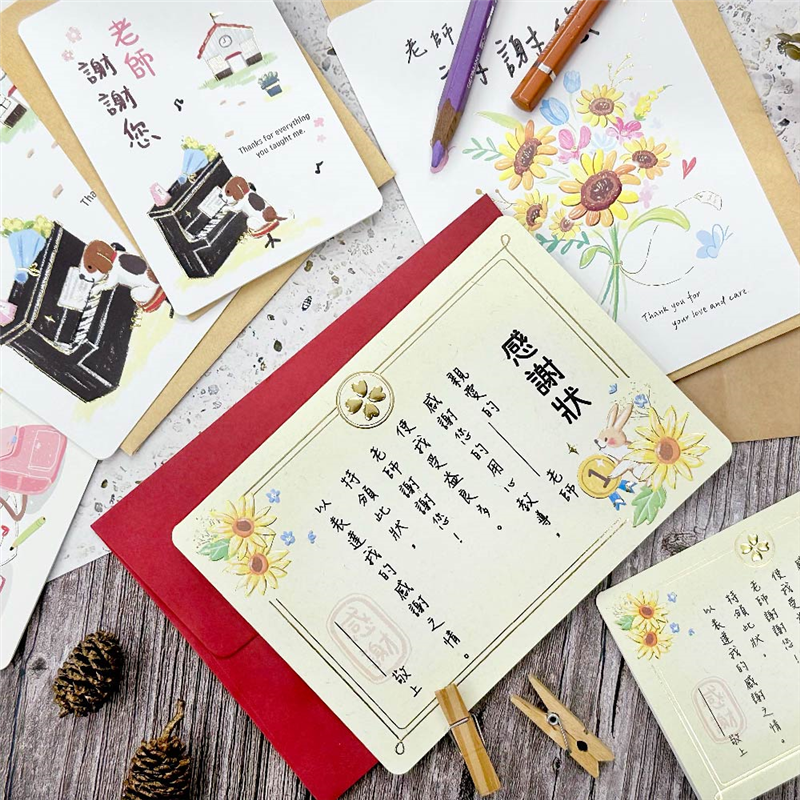 老師
謝謝
您
Thanks for everything
you taught me.
Tha
老師
謝謝
Thank you for
your love and care.
感謝狀
親愛的＿＿＿老師
感謝您的用心教導，
使我受益良多。
老師謝謝您！
持頒此狀，
以表達我的感謝之情。
＿＿＿敬上
感謝
1
使我受
老師謝謝您！
持頒此狀，
以表達我的感謝之情。
敬上
感謝